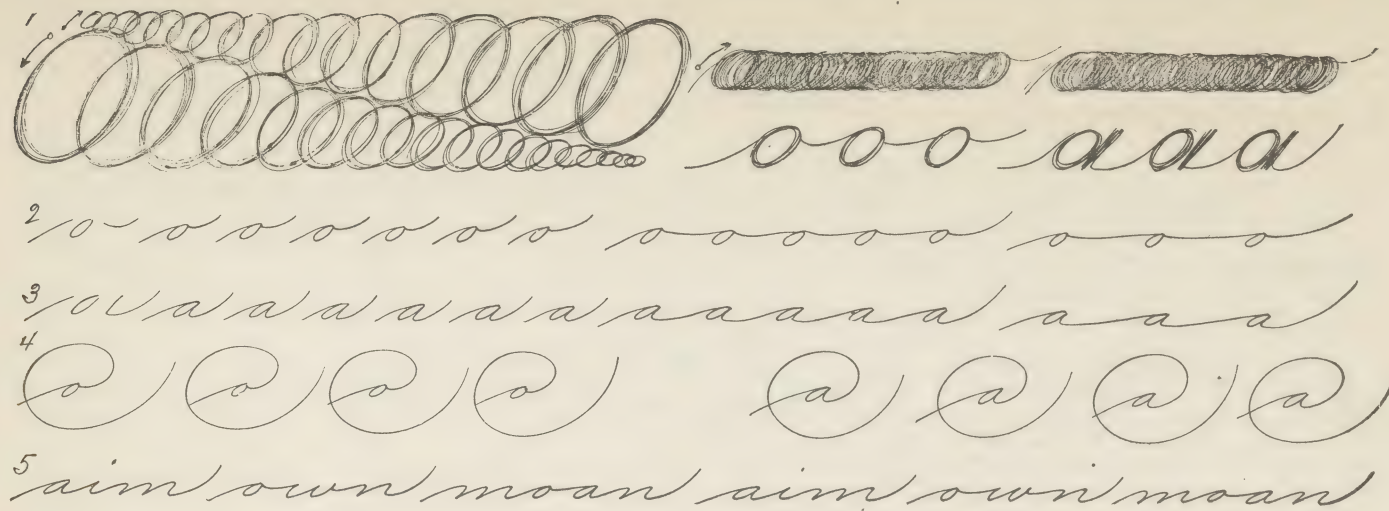 1
o o o a a a
2 o o o o o o o o o o o o o o o
3 o a a a a a a a a a a a a a a
4 o o o o a a a a
5 aim own moan aim own moan